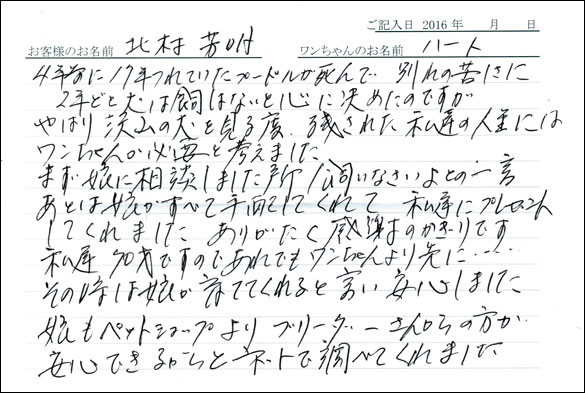 ご記入日 2016 年 月 日
お客様のお名前 北村 芳 ワンちゃんのお名前 ハート
4年前に17年つれていたプードルが死んで 別れの苦しさに
2年どと犬は飼はないと心に決めたのですが
やはり 沢山の犬を見る度、残された私達の人生には
ワンちゃんが必要と考えました
まず娘に相談しました所「飼いなさいよとの一言
あとは娘がすべて手配してくれて 私達にプレゼント
してくれました ありがたく感謝のかぎりです
私達 70才ですのであれでもワンちゃんより先に……
その時は娘が育ててくれると言い安心しました
娘もペットショップより ブリーダーさんからの方が
安心できるからとネットで調べてくれました